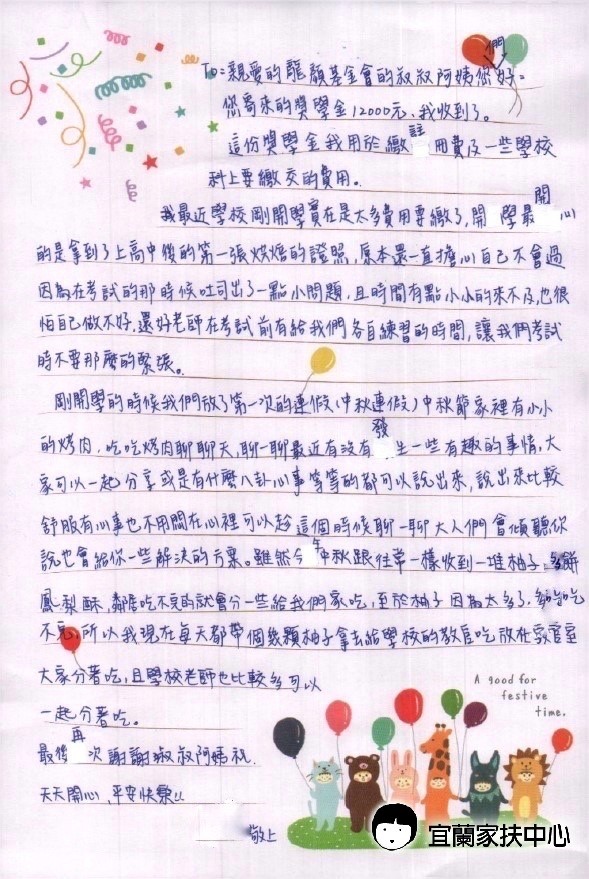 To:親愛的龍顏基金會的叔叔阿姨您們好:
您寄來的獎學金12000元、我收到了。
這份獎學金我用於繳註冊費及一些學校
科上要繳交的費用。
我最近學校剛開學實在是太多費用要繳了,開學最開心
的是拿到了上高中後的第一張烘焙的證照,原本還一直擔心自己不會過
因為在考試的那時候吐司出了一點小問題,且時間有點小小的來不及,也很
怕自己做不好,還好老師在考試前有給我們各自練習的時間,讓我們考試
時不要那麼的緊張。
剛開學的時候我們放了第一次的連假(中秋連假)中秋節家裡有小小
的烤肉,吃吃烤肉聊聊天,聊一聊最近有沒有發生一些有趣的事情,大
家可以一起分享或是有什麼八卦心事等等的都可以說出來,說出來比較
舒服有心事也不用悶在心裡可以趁這個時候聊一聊大人們會傾聽你
說也會給你一些解決的方案。雖然今年中秋跟往常一樣收到一堆柚子、月餅
鳳梨酥,鄰居吃不完的就會分一些給我們家吃,至於柚子因為太多了,吃
不完,所以我現在每天都帶個幾顆柚子拿去給學校的教官吃放在教官室
大家分著吃,且學校老師也比較多可以
一起分著吃。
最後再次謝謝叔叔阿姨祝
天天開心,平安快樂!!
敬上
A good for
festive
time.
宜蘭家扶中心